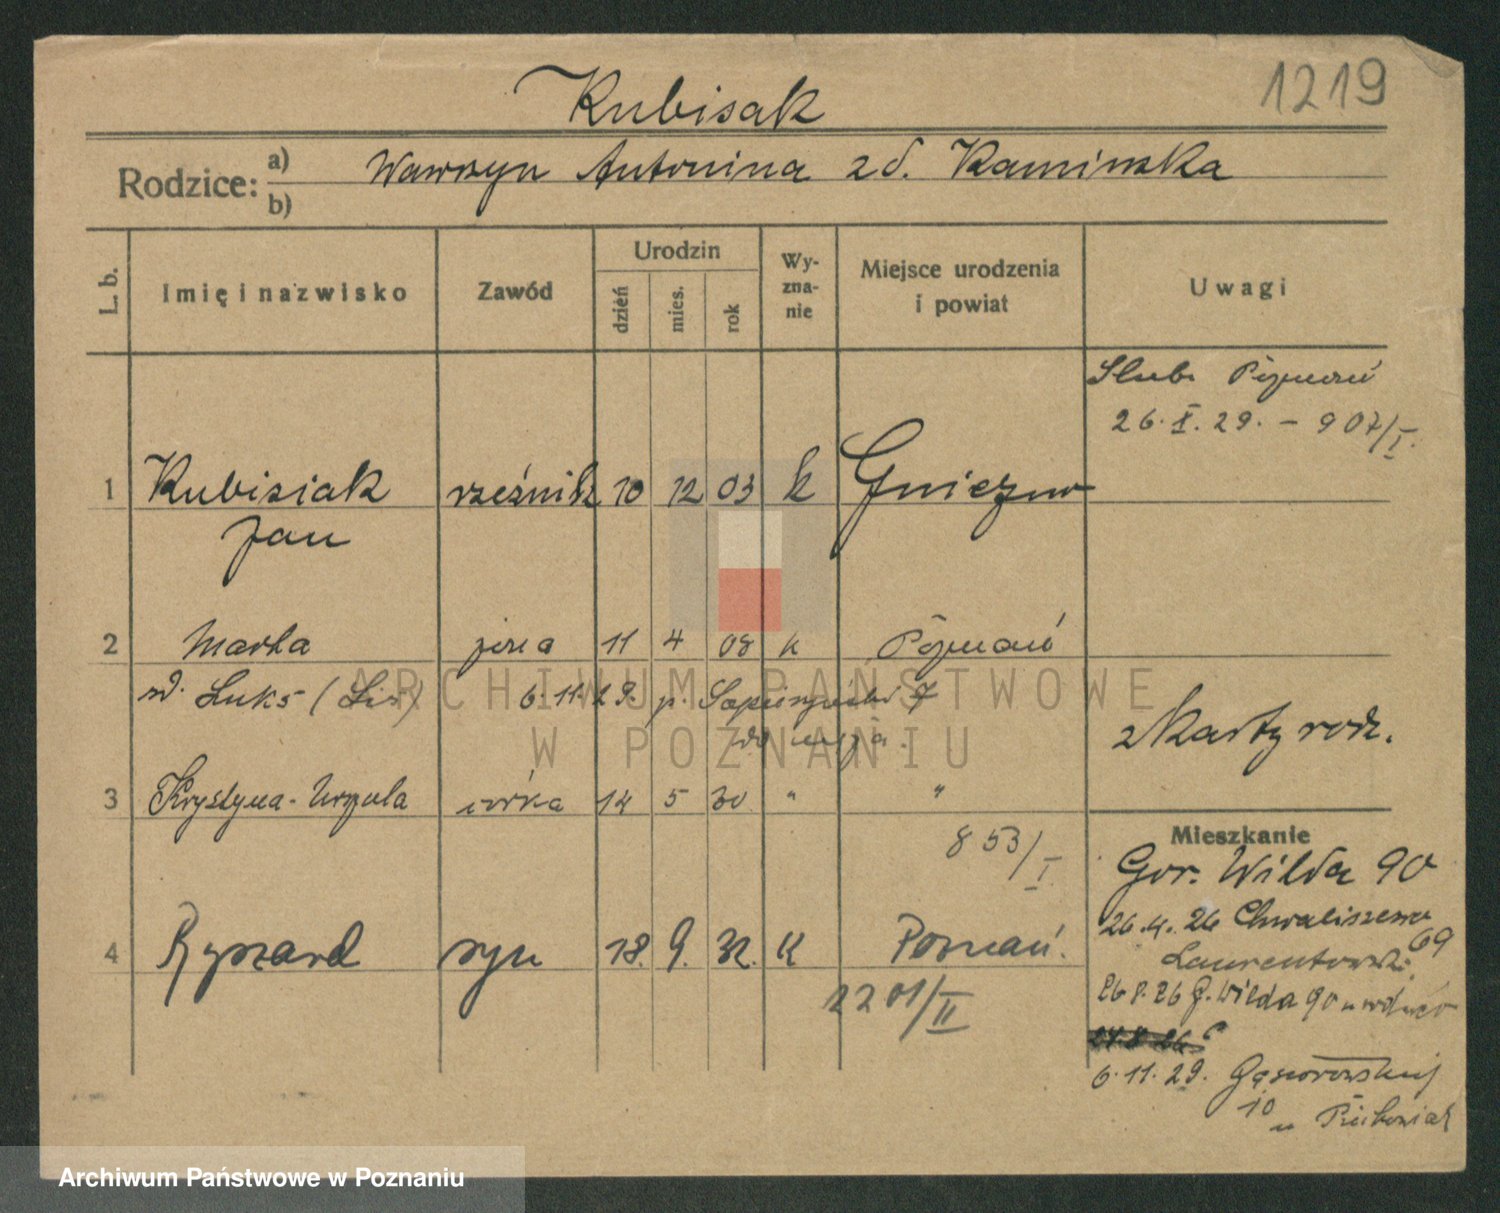 1219
Kubisak
Rodzice: a) Wawrzyn Antonina zd. Kaminska
b)
L. b. Imię i nazwisko Zawód Urodzin dzień mies. rok Wy-zna-nie Miejsce urodzenia i powiat Uwagi
Slub. Poznań
26. X. 29. – 907/I.
1 Kubisiak rzeźnik 10 12 03 k Gniezno
Jan
2 Marta żona 11 4 08 k Poznań
zd. Luks (Lis) 6.11.29. p. 7
do męża.
z Karty rodz.
3 Krystyna-Urszula córka 14 5 30 " "
853/I.
Mieszkanie
Gór. Wilda 90
26.4.26 Chwaliszewo 69
26.8.26 G. Wilda 90 u
4 Ryszard syn 18. 9. 32. k Poznań.
2201/II
6.11.29. Gąsiorowskiej
10
u
ARCHIWUM PAŃSTWOWE
W POZNANIU
Archiwum Państwowe w Poznaniu